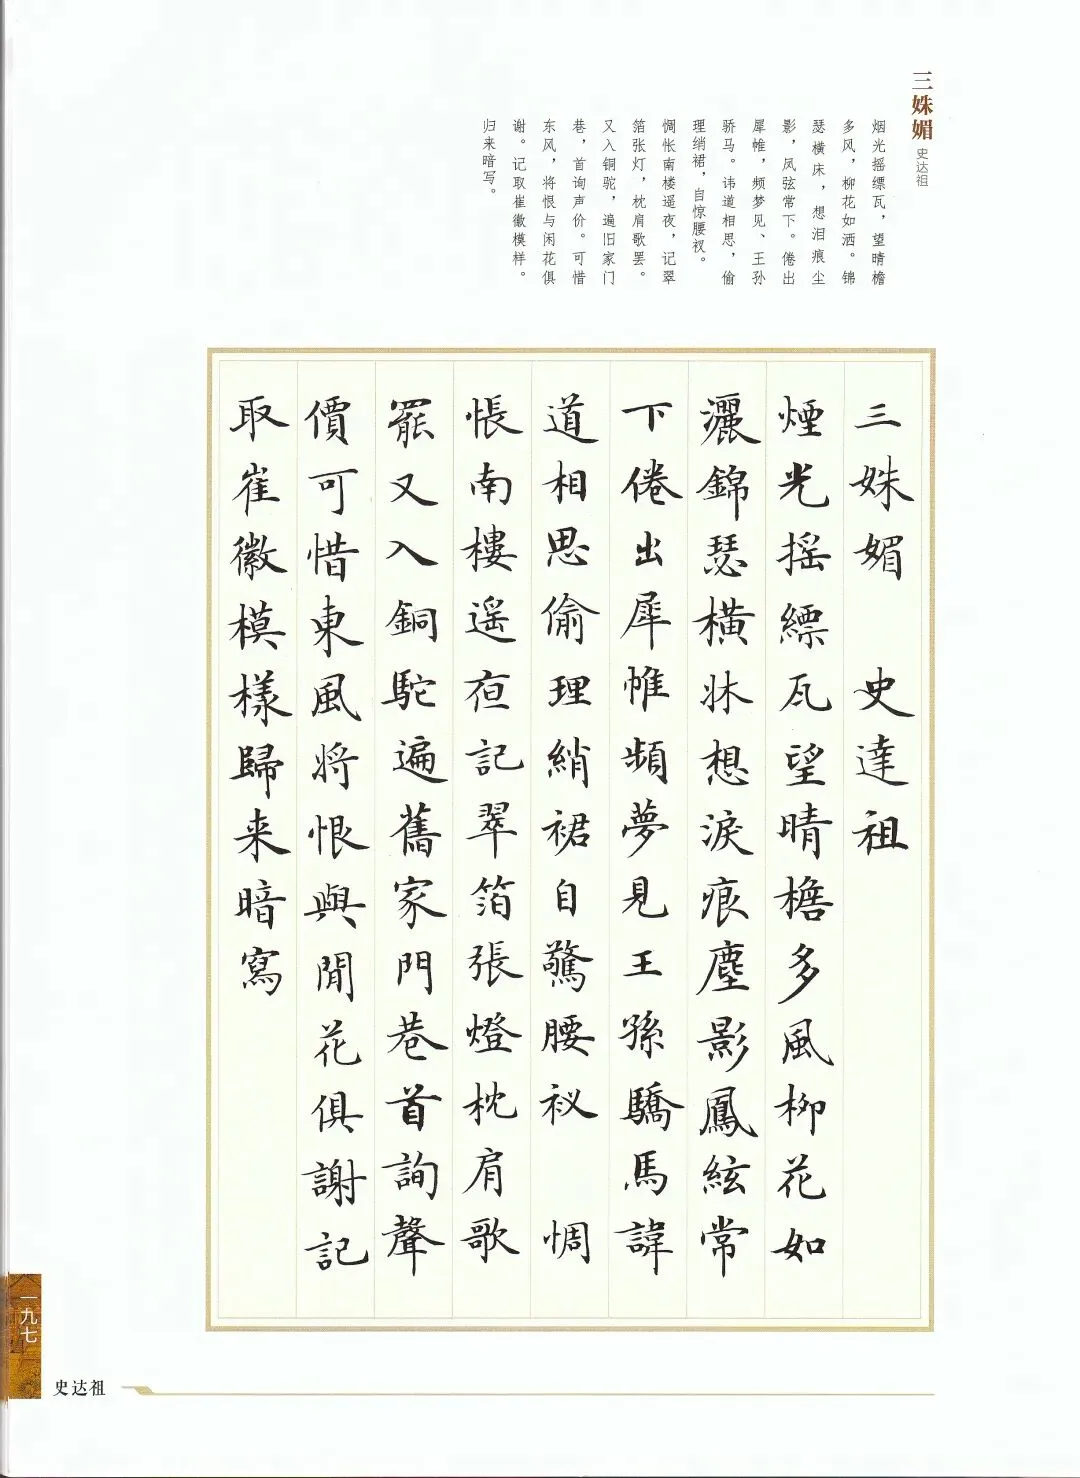 三姝媚
史达祖
烟光摇缥瓦，望晴檐
多风，柳花如洒。锦
瑟横床，想泪痕尘
影，凤弦常下。倦出
犀帷，频梦见、王孙
骄马。讳道相思，偷
理绡裙，自惊腰衩。
惆怅南楼遥夜，记翠
箔张灯，枕肩歌罢。
又入铜驼，遍旧家门
巷，首询声价。可惜
东风，将恨与闲花俱
谢。记取崔徽模样。
归来暗写。
三姝媚 史達祖
煙光摇縹瓦望晴檐多風柳花如
灑錦瑟橫牀想淚痕塵影鳳絃常
下倦出犀帷頻夢見王孫驕馬諱
道相思偷理綃裙自驚腰衩 惆
悵南樓遥夜記翠箔張燈枕肩歌
罷又入銅駝遍舊家門巷首詢聲
價可惜東風将恨與閒花俱謝記
取崔徽模樣歸来暗寫
一九七
史达祖